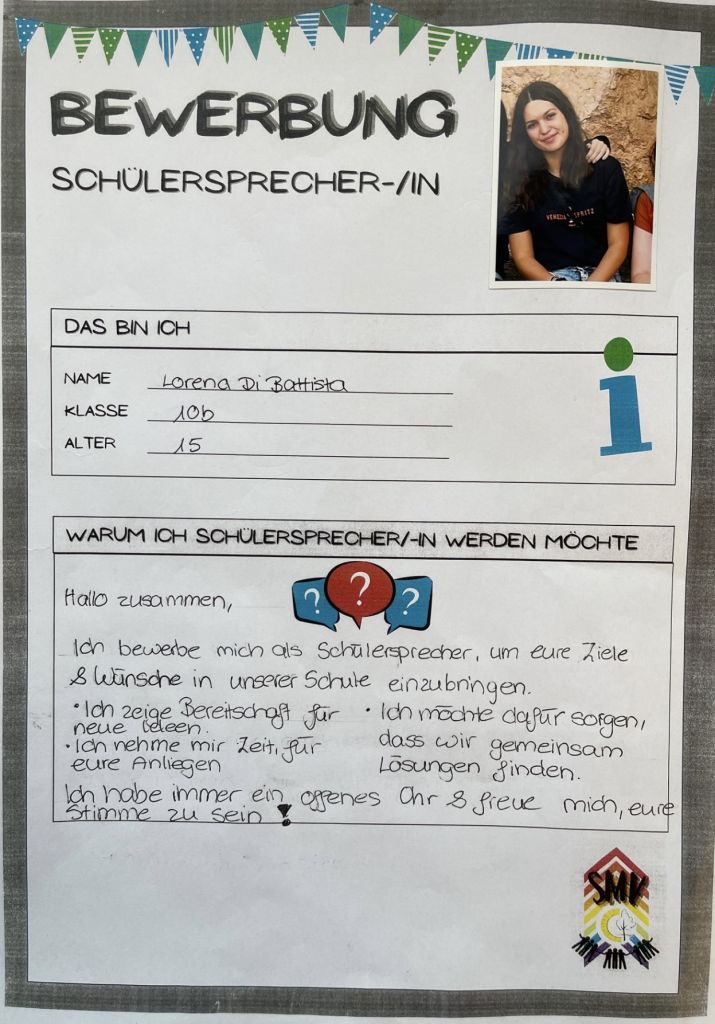 BEWERBUNG
SCHÜLERSPRECHER-/IN
VENEZIA SPRITZ
DAS BIN ICH
NAME Lorena Di Battista
KLASSE 10b
ALTER 15
i
WARUM ICH SCHÜLERSPRECHER/-IN WERDEN MÖCHTE
? ? ?
Hallo zusammen,
Ich bewerbe mich als Schülersprecher, um eure Ziele
& Wünsche in unserer Schule einzubringen.
• Ich zeige Bereitschaft für
neue Ideen.
• Ich nehme mir Zeit, für
eure Anliegen
• Ich möchte dafür sorgen,
dass wir gemeinsam
Lösungen finden.
Ich habe immer ein offenes Ohr & freue mich, eure
Stimme zu sein !
SMV